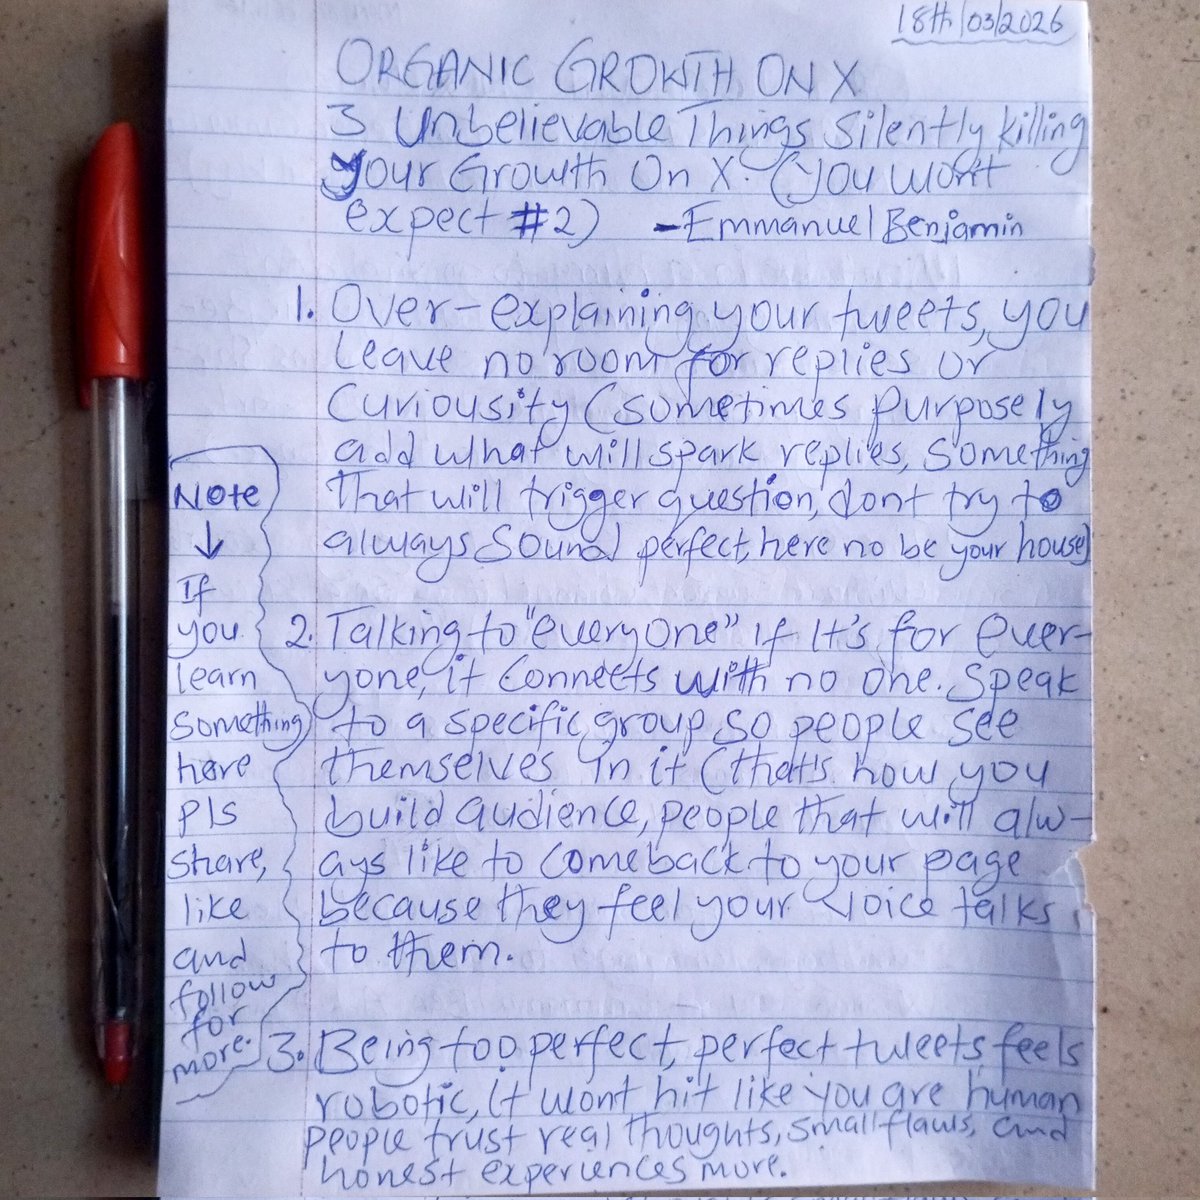 18th/03/2026
ORGANIC GROWTH ON X
3 Unbelievable Things Silently killing
your Growth On X. (you won't
expect #2) -Emmanuel Benjamin
1. Over-explaining your tweets, you
leave no room for replies or
Curiousity (sometimes purposely
add what will spark replies, something
that will trigger question, dont try to
always Sound perfect, here no be your house)
Note
↓
If
you
learn
something
here
pls
share,
like
and
follow
for
more.
2. Talking to "everyone" if It's for ever-
yone, it connects with no one. Speak
to a specific group so people see
themselves in it (that's how you
build audience, people that will alw-
ays like to comeback to your page
because they feel your voice talks
to them.
3. Being too perfect, perfect tweets feels
robotic, it wont hit like you are human
people trust real thoughts, small flaws, and
honest experiences more.